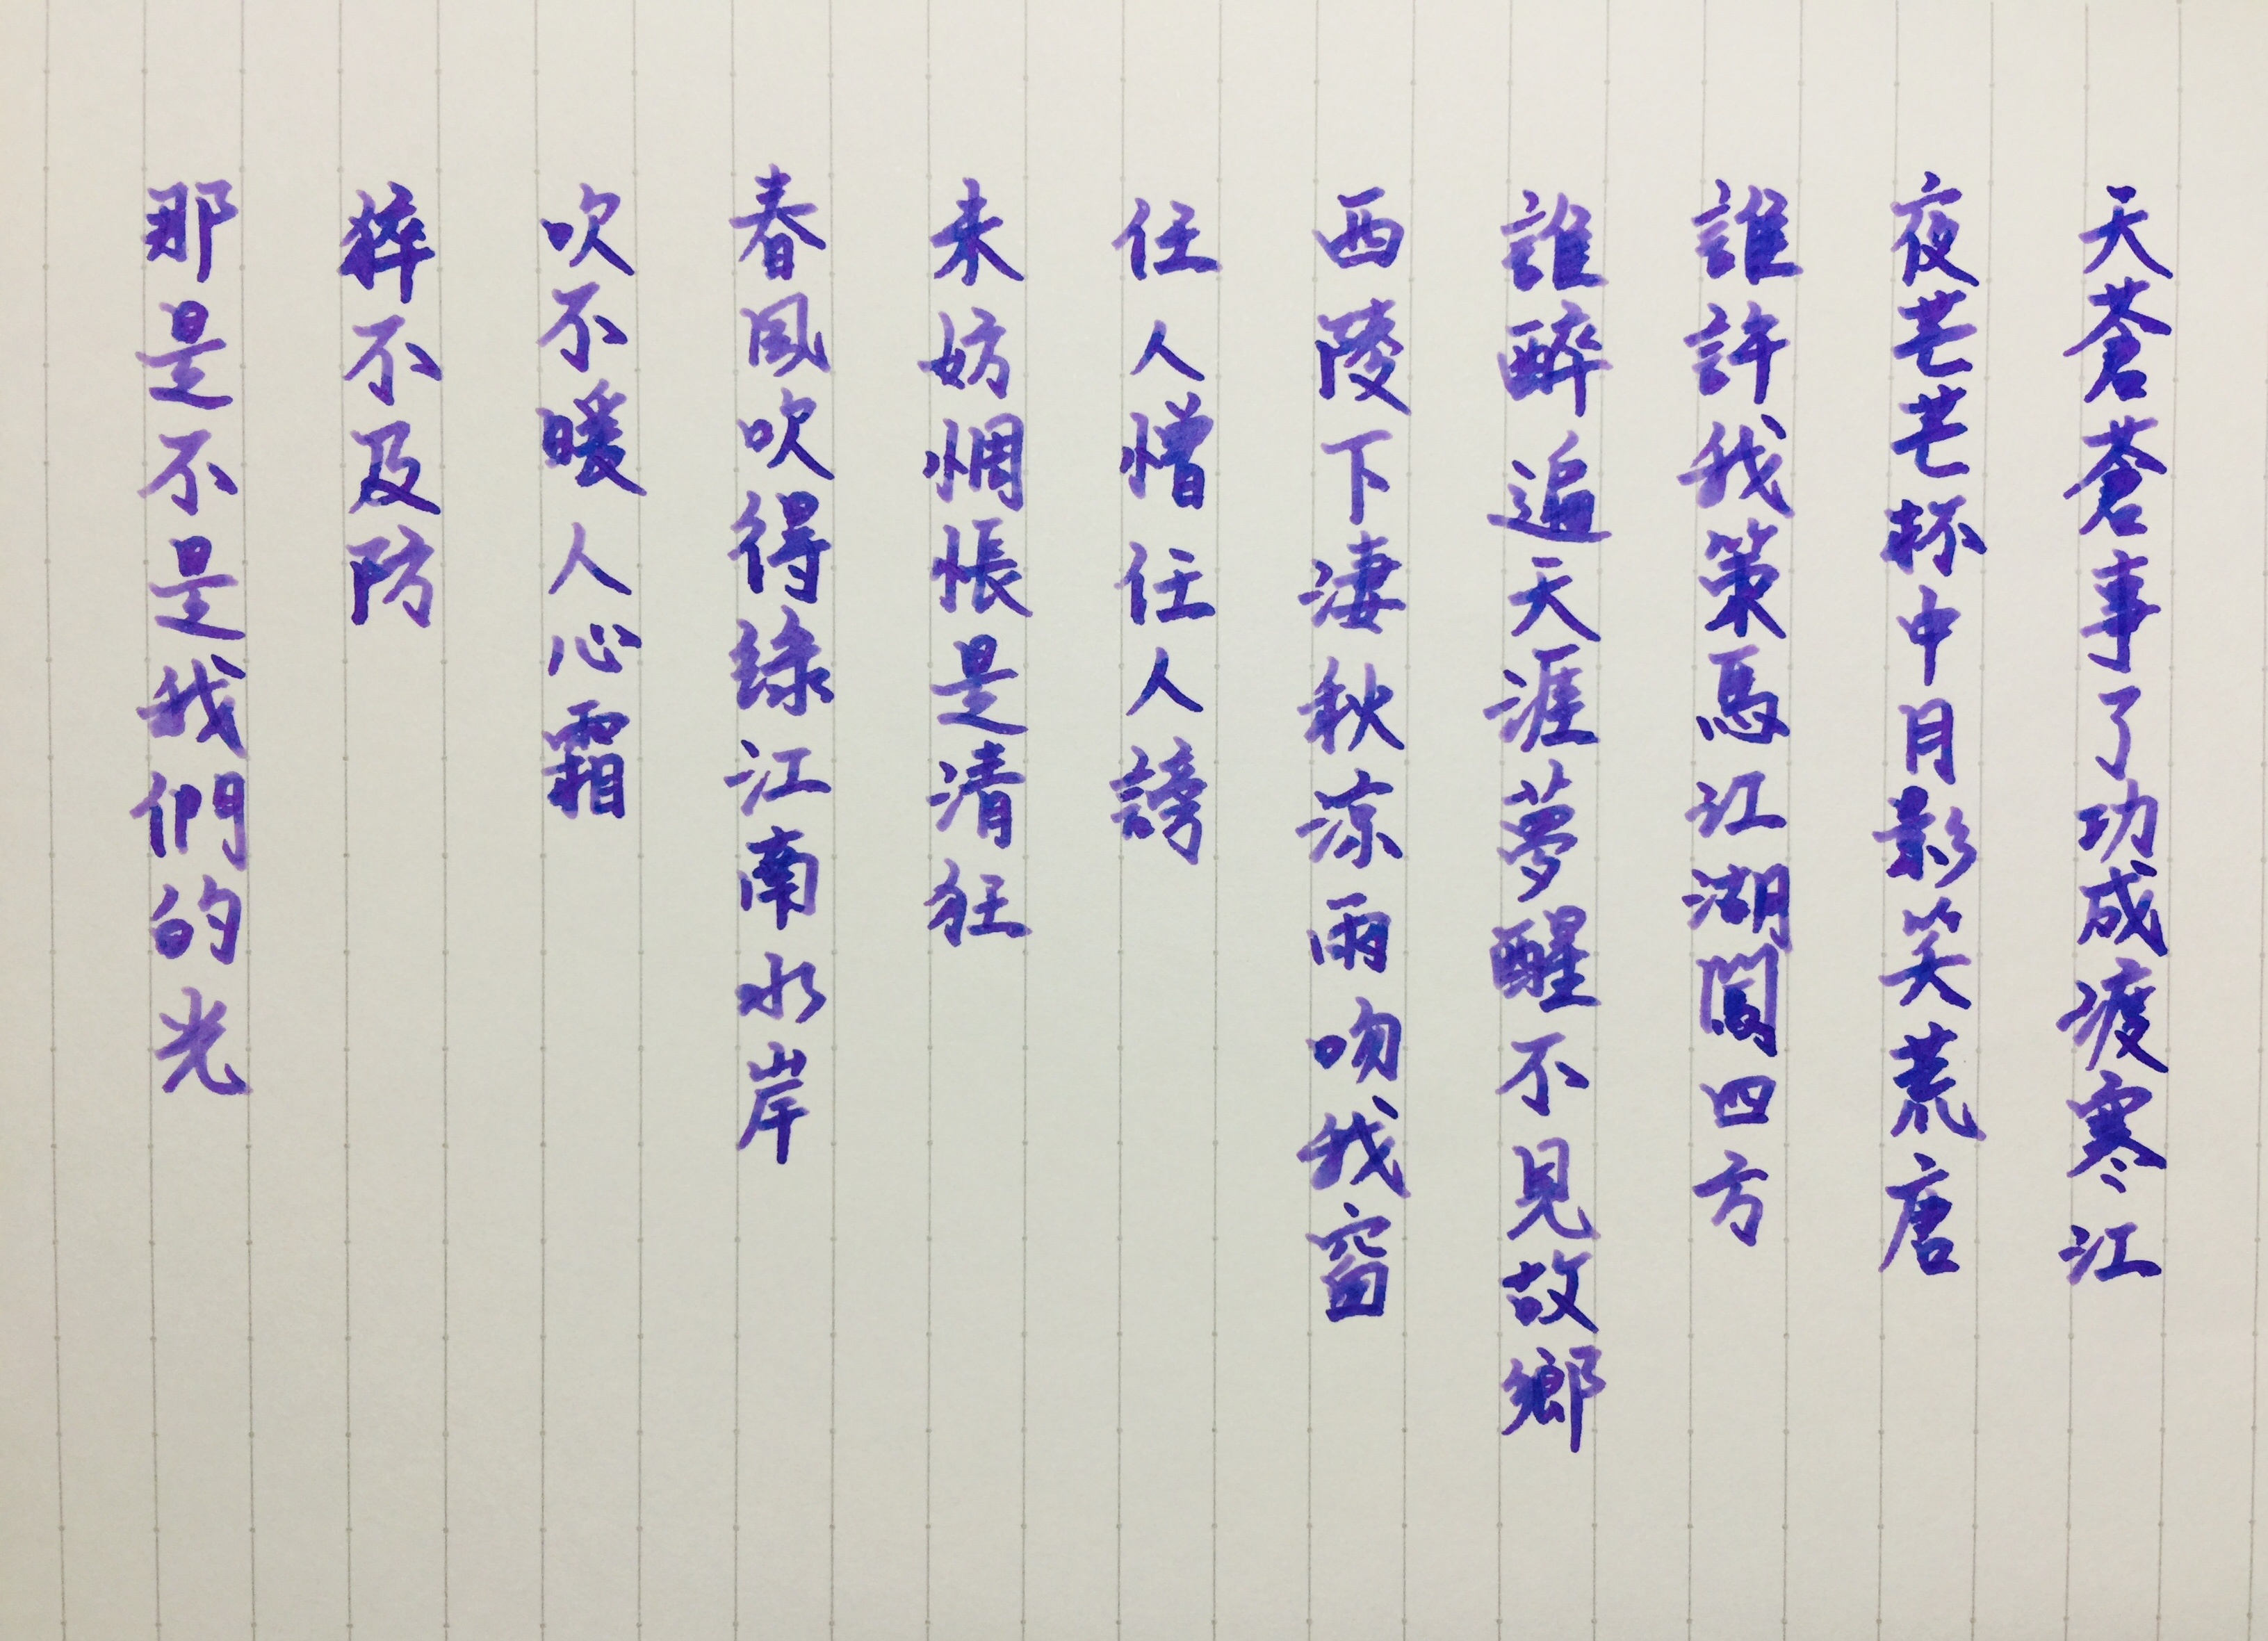 天蒼蒼事了功成渡寒江
夜芒芒杯中月影笑荒唐
誰許我策馬江湖闖四方
誰醉追天涯夢醒不見故鄉
西陵下淒秋涼雨吻我窗
任人憎任人謗
未妨惆悵是清狂
春風吹得綠江南水岸
吹不暖人心霜
猝不及防
那是不是我們的光